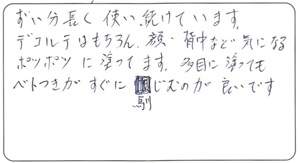 ずい分長く使い続けています。
デコルテはもちろん、顔・背中など気になる
ポツポツに塗ってます。多目に塗っても
ベトつきがすぐに馴じむのが良いです